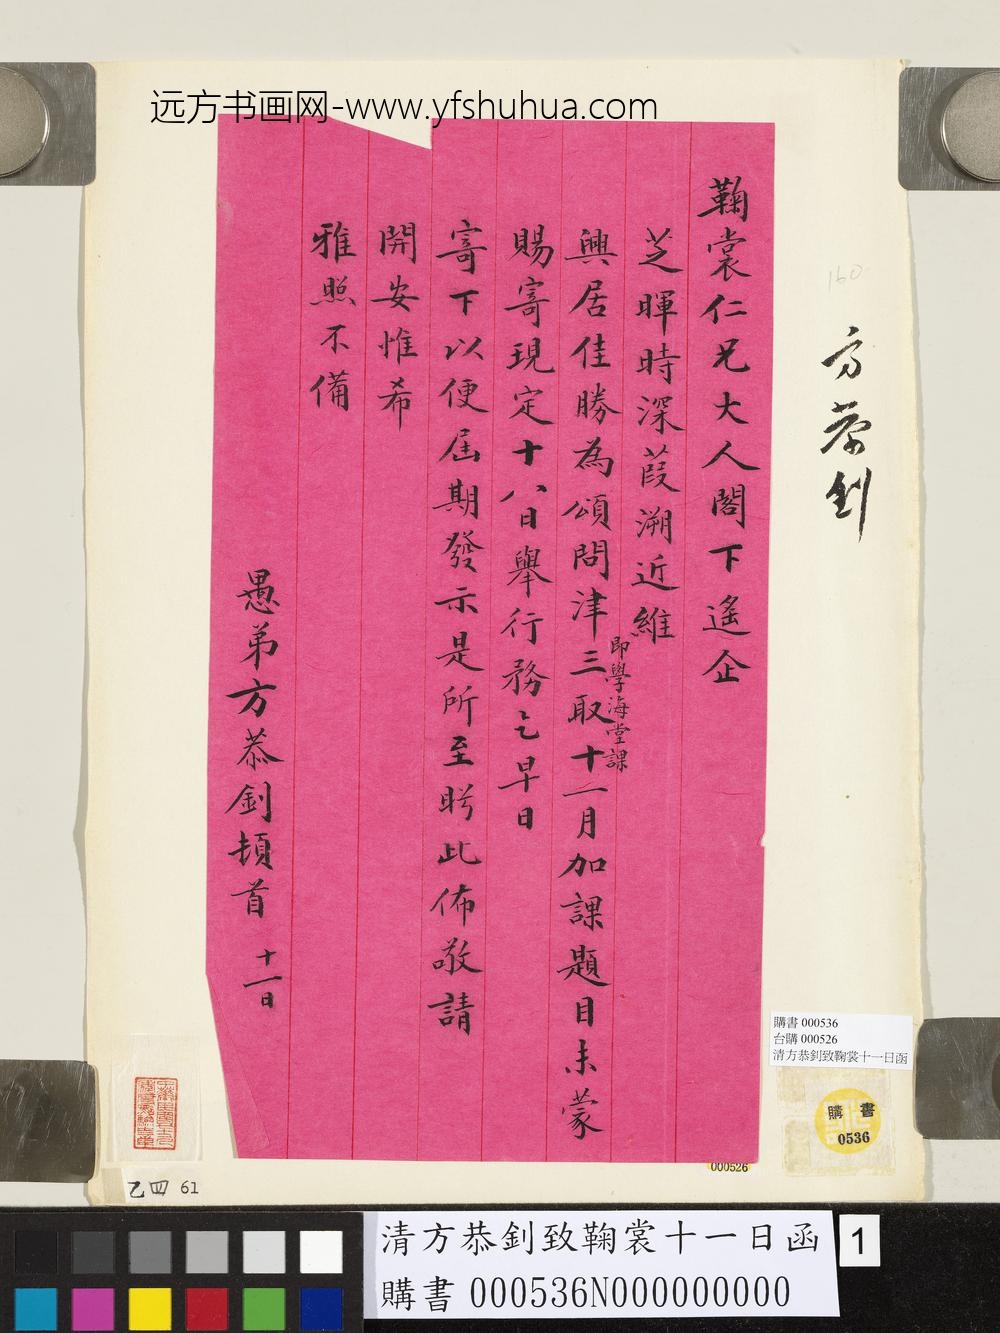 远方书画网-www.yfshuhua.com
鞠裳仁兄大人閣下遙企
芝暉時深葭溯近維
興居佳勝為頌問津三取十一月加課題目未蒙
即學海堂課
賜寄現定十八日舉行務乞早日
寄下以便屆期發示是所至盼此佈敬請
開安惟希
雅照不備
愚弟方恭釗頓首
十一日
160
方恭釗
購書 000536
台購 000526
清方恭釗致鞠裳十一日函
購書
0536
000526
乙四 61
清方恭釗致鞠裳十一日函
購書 000536N000000000
1